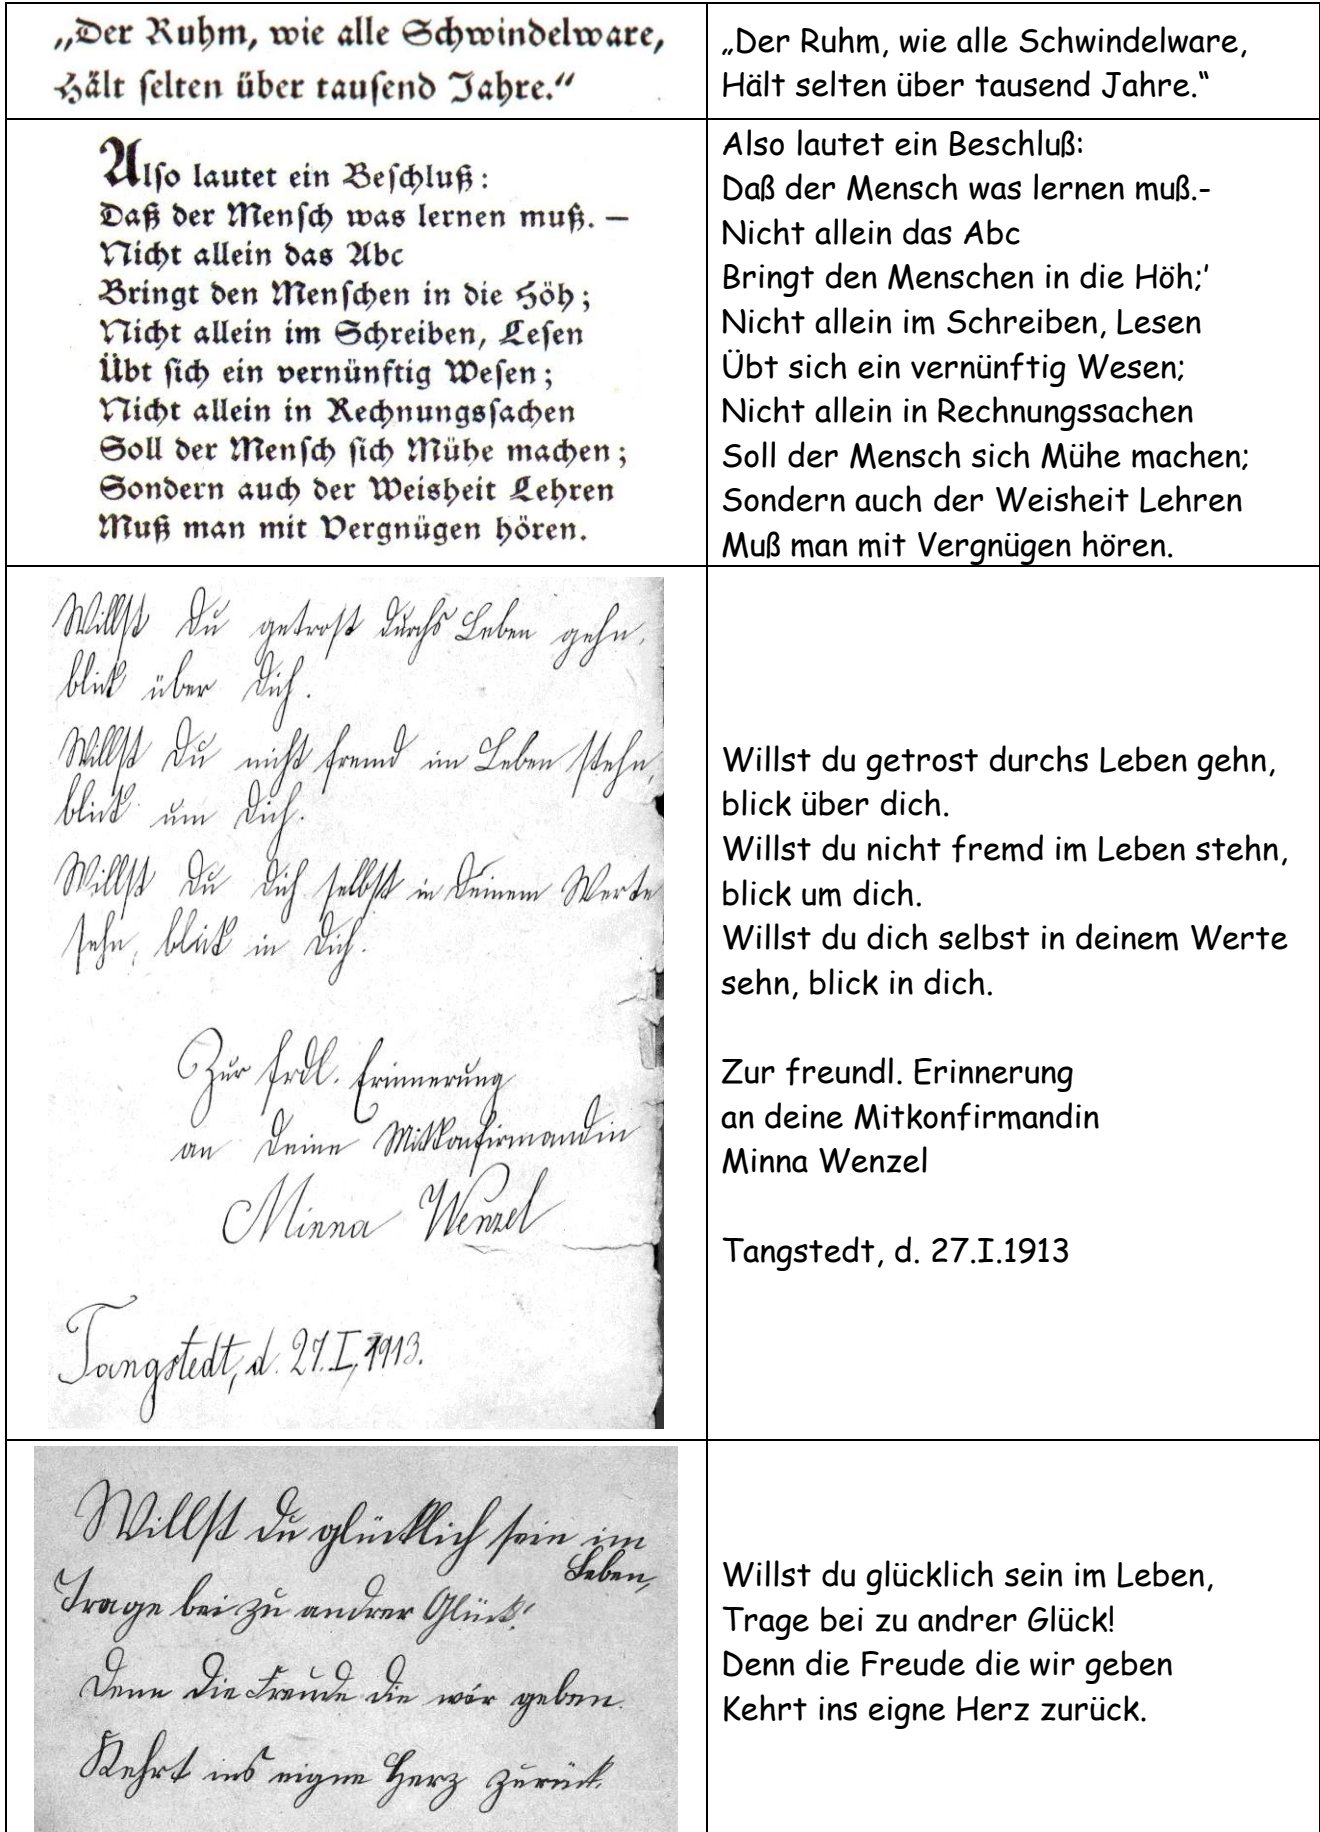 „Der Ruhm, wie alle Schwindelware,
Hält selten über tausend Jahre.“
„Der Ruhm, wie alle Schwindelware,
Hält selten über tausend Jahre.“
Also lautet ein Beschluß:
Daß der Mensch was lernen muß. –
Nicht allein das Abc
Bringt den Menschen in die Höh;
Nicht allein im Schreiben, Lesen
Übt sich ein vernünftig Wesen;
Nicht allein in Rechnungssachen
Soll der Mensch sich Mühe machen;
Sondern auch der Weisheit Lehren
Muß man mit Vergnügen hören.
Also lautet ein Beschluß:
Daß der Mensch was lernen muß.-
Nicht allein das Abc
Bringt den Menschen in die Höh;’
Nicht allein im Schreiben, Lesen
Übt sich ein vernünftig Wesen;
Nicht allein in Rechnungssachen
Soll der Mensch sich Mühe machen;
Sondern auch der Weisheit Lehren
Muß man mit Vergnügen hören.
Willst du getrost durchs Leben gehn,
blick über dich.
Willst du nicht fremd im Leben stehn,
blick um dich.
Willst du dich selbst in deinem Werte
sehn, blick in dich.
Zur frdl. Erinnerung
an deine Mitkonfirmandin
Minna Wenzel
Tangstedt, d. 27.I.1913.
Willst du getrost durchs Leben gehn,
blick über dich.
Willst du nicht fremd im Leben stehn,
blick um dich.
Willst du dich selbst in deinem Werte
sehn, blick in dich.
Zur freundl. Erinnerung
an deine Mitkonfirmandin
Minna Wenzel
Tangstedt, d. 27.I.1913
Willst du glücklich sein im
Leben,
Trage bei zu andrer Glück!
Denn die Freude die wir geben
Kehrt ins eigne Herz zurück.
Willst du glücklich sein im Leben,
Trage bei zu andrer Glück!
Denn die Freude die wir geben
Kehrt ins eigne Herz zurück.